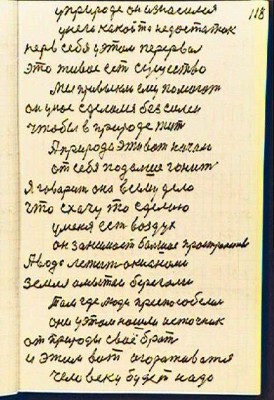 118
уприроде он износился
унего какой то недостаток
нерв себя утом перервал
это живое ест существо
Мы привыкли ему помогат
он уное сделался без силен
чтобы в природе жит
Априрода этово начало
от себя подалше гонит
Я говорит она всему дело
что схачу то сделаю
уменя ест воздух
он занимает болшое пространство
Авода лежит океанами
земля омытая берегами
Там где люди приспособелис
они утом нашли источник
от природы своё брат
и этим вот огораживатся
человеку будет надо